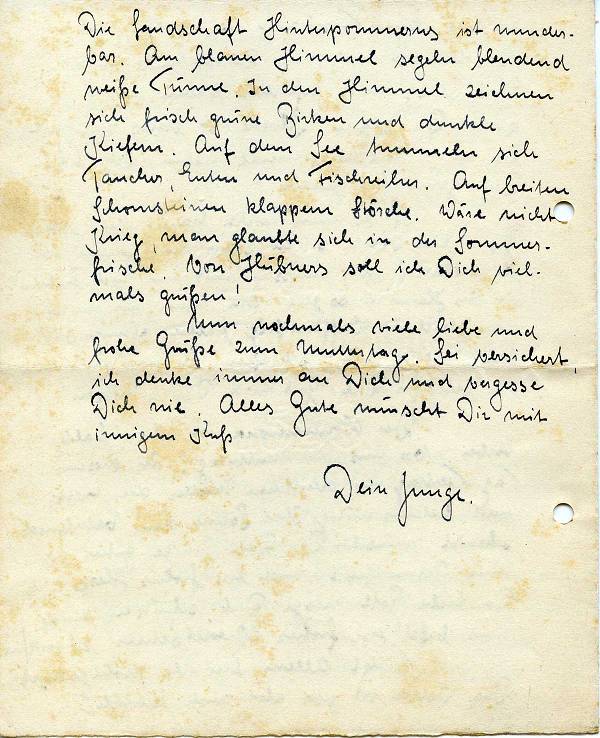 Die Landschaft Hinterpommerns ist wunder-
bar. Am blauen Himmel segeln blendend
weiße Türme. In den Himmel zeichnen
sich frisch grüne Birken und dunkle
Kiefern. Auf dem See tummeln sich
Taucher, Enten und Fischreiher. Auf breiten
Schornsteinen klappern Störche. Wäre nicht
Krieg, man glaubte sich in der Sommer-
frische. Von Hübners soll ich Dich viel-
mals grüßen!
Nun nochmals viele liebe und
frohe Grüße zum Muttertage. Sei versichert,
ich denke immer an Dich und vergesse
Dich nie. Alles Gute wünscht Dir mit
innigem Kuß
Dein Junge.